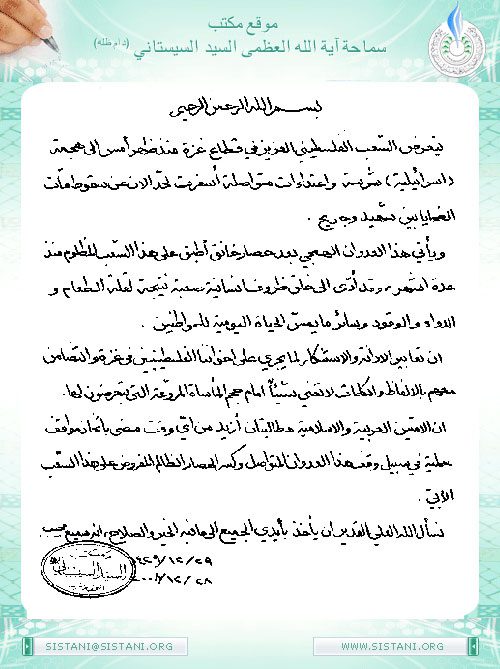 موقع مكتب
سماحة آية الله العظمى السيد السيستاني (دام ظله)
بسم الله الرحمن الرحيم
يتعرض الشعب الفلسطيني العزيز في قطاع غزة منذ ظهر أمس الى هجمة
(اسرائيلية) شرسة واعتداءات متواصلة أسفرت لحد الان عن سقوط مئات
الضحايا بين شهيد وجريح .
ويأتي هذا العدوان الهمجي بعد حصار خانق أطبق على هذا الشعب المظلوم منذ
عدة اشهر، وقد أدّى الى خلق ظروف انسانية صعبة نتيجة لقلة الطعام و
الدواء والوقود وسائر ما يمس الحياة اليومية للمواطنين .
ان تعابير الادانة والاستنكار لما يجري على اخواننا الفلسطينيين في غزة والتضامن
معهم بالالفاظ والكلمات لا تعني شيئاً امام حجم المأساة المروعة التي يتعرضون لها.
ان الامتين العربية والاسلامية مطالبتان أزيد من أي وقت مضى باتخاذ مواقف
عملية في سبيل وقف هذا العدوان المتواصل وكسر الحصار الظالم المفروض على هذا الشعب
الأبيّ .
نسأل الله العلي القدير ان يأخذ بأيدي الجميع الى ما فيه الخير والصلاح، انه سميع مجيب.
١٤٢٩/١٢/٢٩
٢٠٠٨/١٢/٢٨
السيد السيستاني
SISTANI@SISTANI.ORG
WWW.SISTANI.ORG